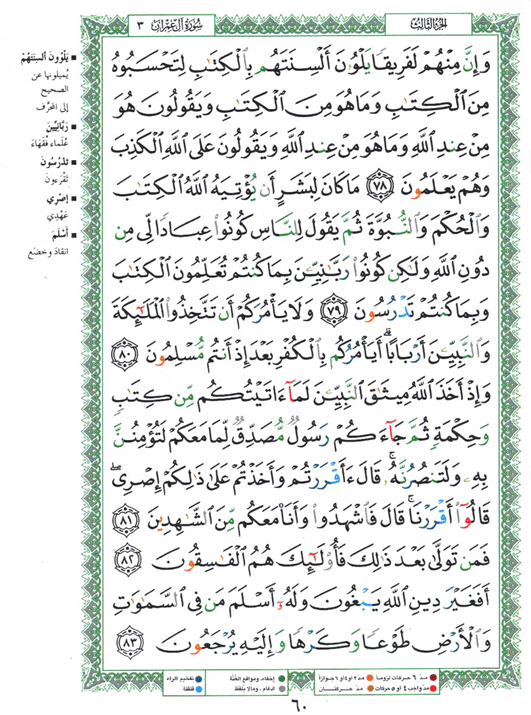 الجزء الثالث
سورة آل عمران ٣
وَإِنَّ مِنْهُمْ لَفَرِيقًا يَلْوُۥنَ أَلْسِنَتَهُم بِالْكِتَٰبِ لِتَحْسَبُوهُ
مِنَ الْكِتَٰبِ وَمَا هُوَ مِنَ الْكِتَٰبِ وَيَقُولُونَ هُوَ
مِنْ عِندِ اللَّهِ وَمَا هُوَ مِنْ عِندِ اللَّهِ وَيَقُولُونَ عَلَى اللَّهِ الْكَذِبَ
وَهُمْ يَعْلَمُونَ ٧٨ مَا كَانَ لِبَشَرٍ أَن يُؤْتِيَهُ اللَّهُ الْكِتَٰبَ
وَالْحُكْمَ وَالنُّبُوَّةَ ثُمَّ يَقُولَ لِلنَّاسِ كُونُوا۟ عِبَادًا لِّى مِن
دُونِ اللَّهِ وَلَٰكِن كُونُوا۟ رَبَّٰنِيِّۦنَ بِمَا كُنتُمْ تُعَلِّمُونَ الْكِتَٰبَ
وَبِمَا كُنتُمْ تَدْرُسُونَ ٧٩ وَلَا يَأْمُرَكُمْ أَن تَتَّخِذُوا۟ الْمَلَٰٓئِكَةَ
وَالنَّبِيِّۦنَ أَرْبَابًا ۗ أَيَأْمُرُكُم بِالْكُفْرِ بَعْدَ إِذْ أَنتُم مُّسْلِمُونَ ٨٠
وَإِذْ أَخَذَ اللَّهُ مِيثَٰقَ النَّبِيِّۦنَ لَمَآ ءَاتَيْتُكُم مِّن كِتَٰبٍ
وَحِكْمَةٍ ثُمَّ جَآءَكُمْ رَسُولٌ مُّصَدِّقٌ لِّمَا مَعَكُمْ لَتُؤْمِنُنَّ
بِهِۦ وَلَتَنصُرُنَّهُۥ ۚ قَالَ ءَأَقْرَرْتُمْ وَأَخَذْتُمْ عَلَىٰ ذَٰلِكُمْ إِصْرِى ۖ
قَالُوٓا۟ أَقْرَرْنَا ۚ قَالَ فَاشْهَدُوا۟ وَأَنَا۠ مَعَكُم مِّنَ الشَّٰهِدِينَ ٨١
فَمَن تَوَلَّىٰ بَعْدَ ذَٰلِكَ فَأُو۟لَٰٓئِكَ هُمُ الْفَٰسِقُونَ ٨٢
أَفَغَيْرَ دِينِ اللَّهِ يَبْغُونَ وَلَهُۥٓ أَسْلَمَ مَن فِى السَّمَٰوَٰتِ
وَالْأَرْضِ طَوْعًا وَكَرْهًا وَإِلَيْهِ يُرْجَعُونَ ٨٣
يَلْوُونَ أَلسِنَتَهُمْ
يُميلونها عن
الصحيح
إلى المحرَّف
رَبَّانِيِّينَ
عُلَماء فُقَهَاءَ
تَدْرُسُونَ
تَقْرَءونَ
إِصْرِي
عَهْدِي
أَسْلَمَ
انقاد وخضع
مدّ ٦ حركات لزوماً
مدّ ٢ أو ٤ أو ٦ جوازاً
إخفاء، ومواقع الغُنَّة
تفخيم الراء
مدّ واجب ٤ أو ٥ حركات
مدّ حركتان
ادغام، ومالا يلفظ
قلقلة
٦٠